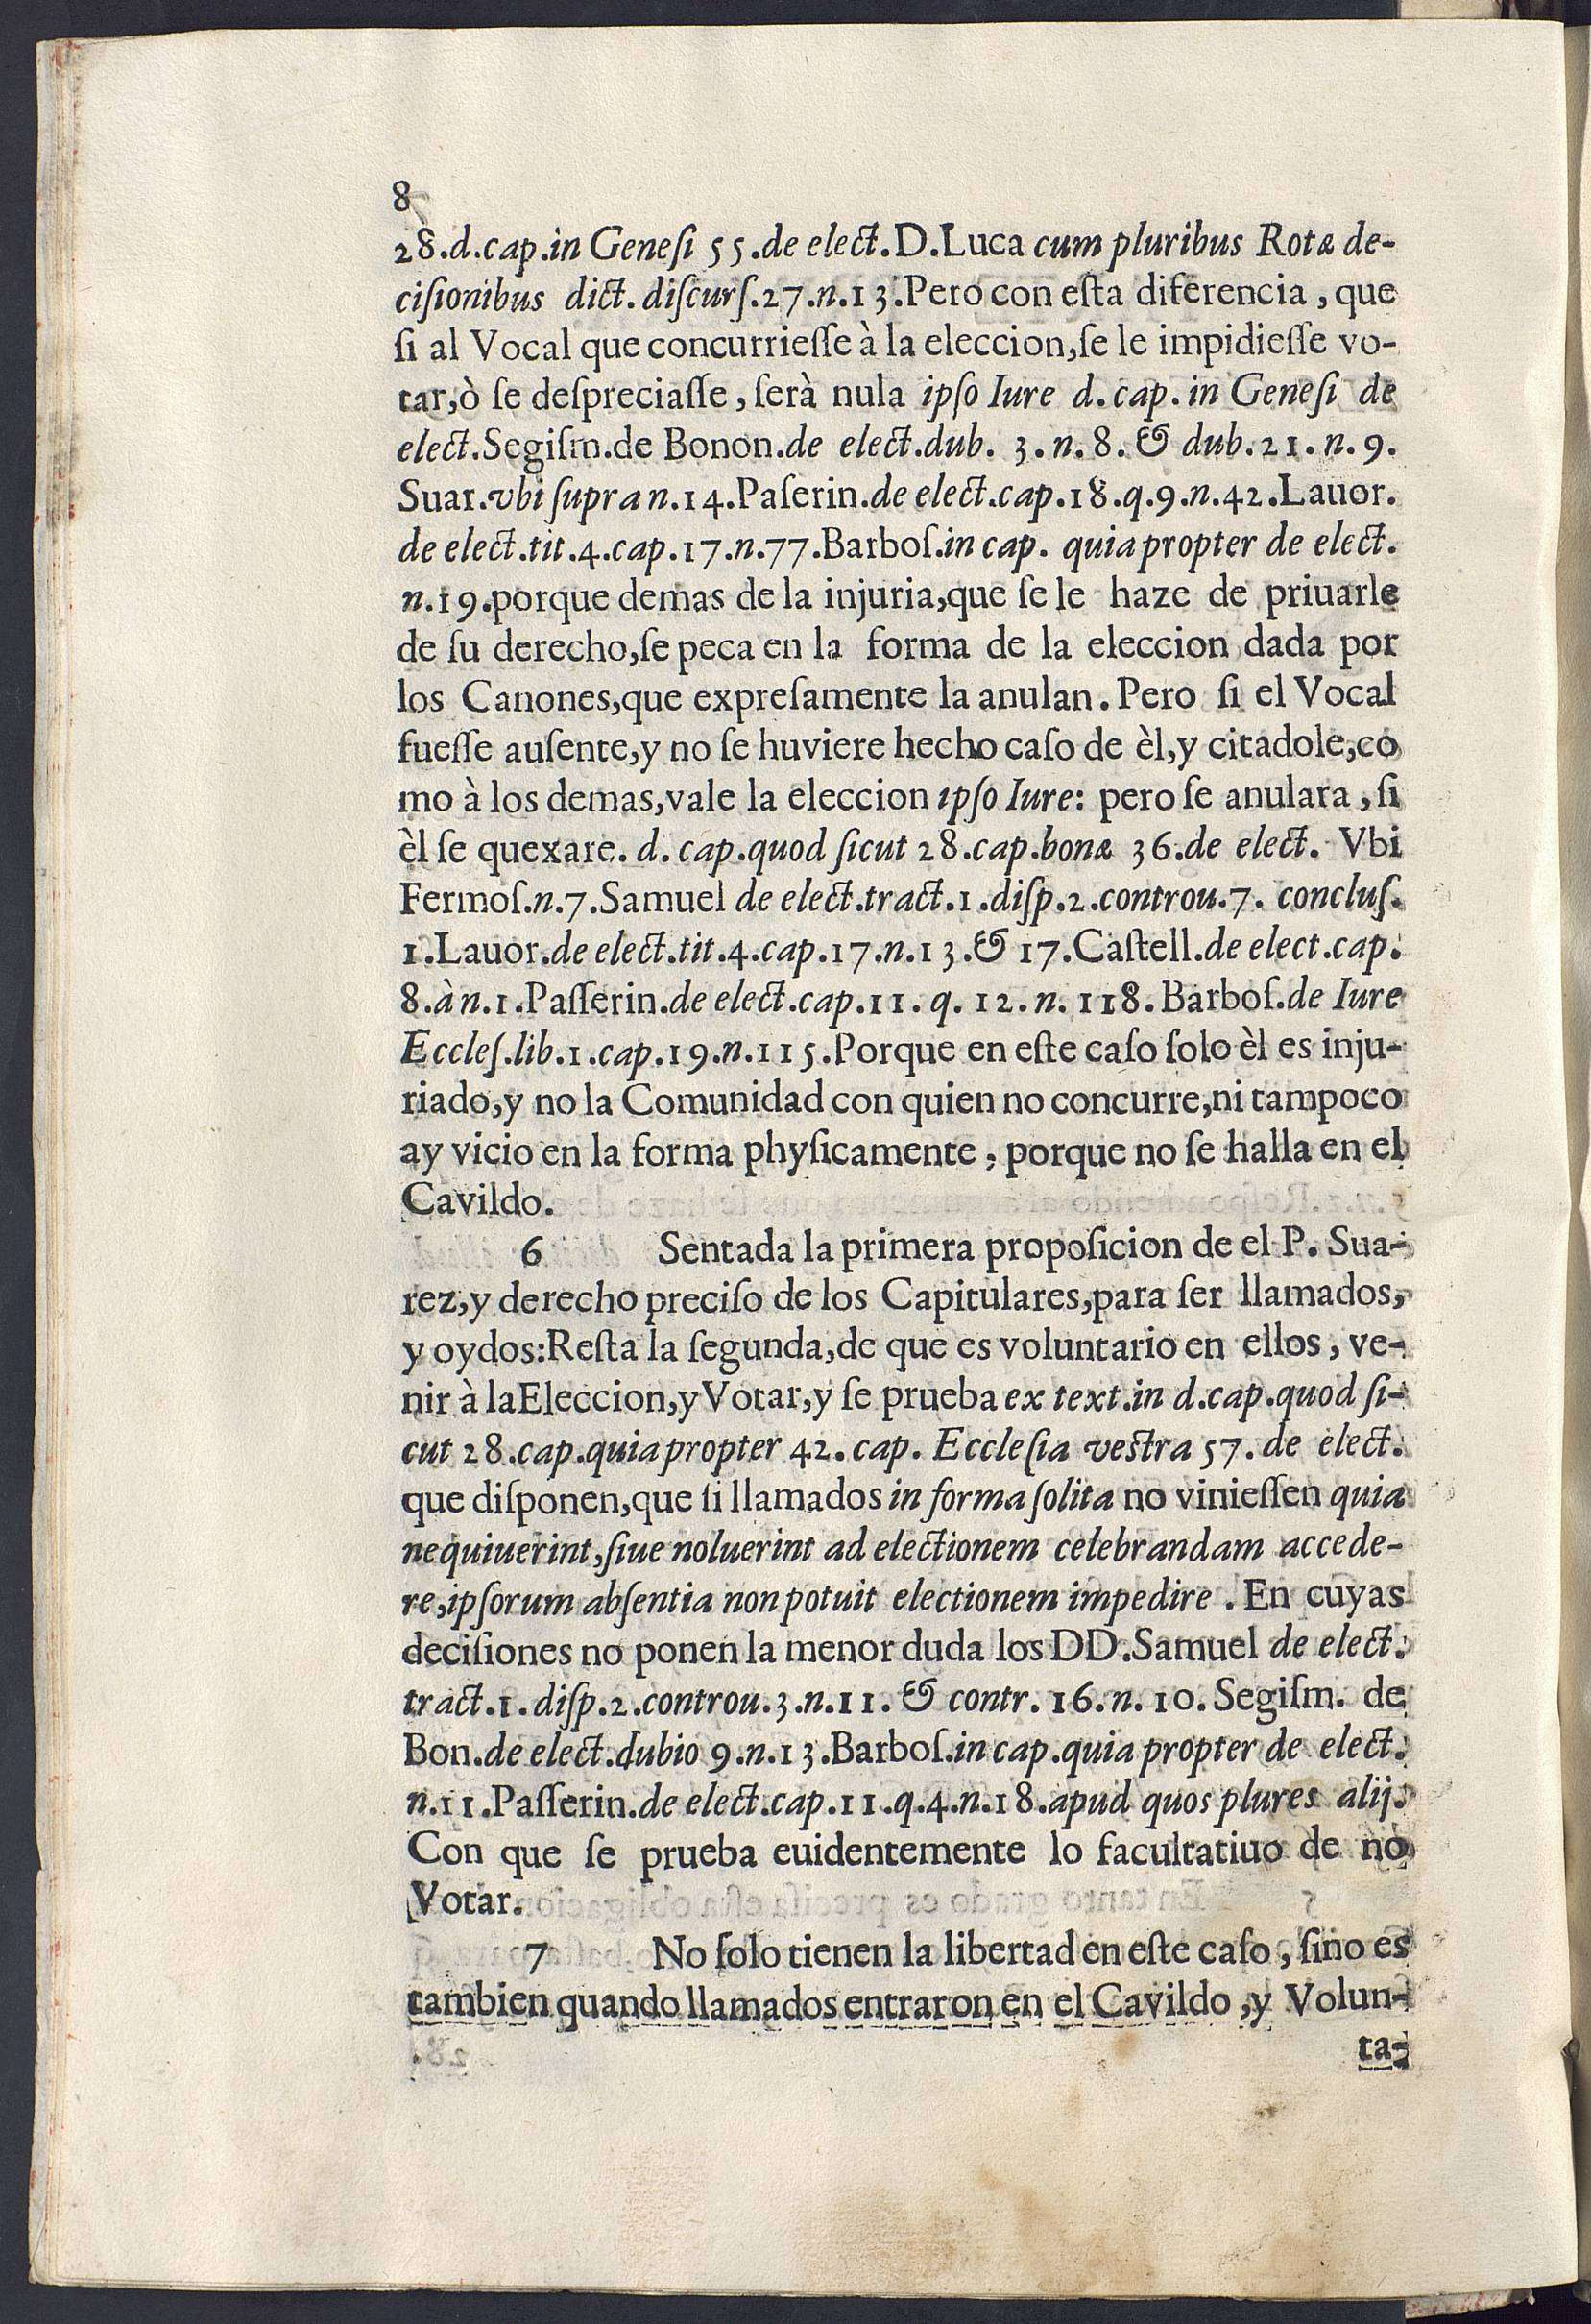 8
28.d.cap.in Geneſi 55.de elect.D.Luca cum pluribus Rotæ de-
ciſionibus dict. diſcurſ.27.n.13.Pero con eſta diferencia, que
ſi al Vocal que concurrieſſe à la eleccion,ſe le impidieſſe vo-
tar,ò ſe deſpreciaſſe, ſerà nula ipſo Iure d.cap.in Geneſi de
elect.Segiſm.de Bonon.de elect.dub. 3.n.8. & dub.21.n.9.
Suar.vbi ſupra n.14.Paſerin.de elect.cap.18.q.9.n.42.Lauor.
de elect.tit.4.cap.17.n.77.Barboſ.in cap. quia propter de elect.
n.19.porque demas de la injuria,que ſe le haze de priuarle
de ſu derecho,ſe peca en la forma de la eleccion dada por
los Canones,que expreſamente la anulan. Pero ſi el Vocal
fueſſe auſente,y no ſe huviere hecho caſo de èl,y citadole,co
mo à los demas,vale la eleccion ipſo Iure: pero ſe anulara, ſi
èl ſe quexare. d. cap.quod ſicut 28.cap.bonæ 36.de elect. Vbi
Fermoſ.n.7.Samuel de elect.tract.1.diſp.2.controu.7. concluſ.
1.Lauor.de elect.tit.4.cap.17.n.13.& 17.Caſtell.de elect.cap.
8.à n.1.Paſſerin.de elect.cap.11.q.12.n.118.Barboſ.de Iure
Eccleſ.lib.1.cap.19.n.115.Porque en eſte caſo ſolo èl es inju-
riado,y no la Comunidad con quien no concurre,ni tampoco
ay vicio en la forma phyſicamente, porque no ſe halla en el
Cavildo.
6 Sentada la primera propoſicion de el P. Sua-
rez,y derecho preciſo de los Capitulares,para ſer llamados,
y oydos:Reſta la ſegunda,de que es voluntario en ellos, ve-
nir à laEleccion,y Votar,y ſe prueba ex text.in d.cap.quod ſi-
cut 28.cap.quia propter 42. cap. Eccleſia vestra 57.de elect.
que diſponen,que ſi llamados in forma ſolita no vinieſſen quia
nequiuerint,ſiue noluerint ad electionem celebrandam accede-
re,ipſorum abſentia non potuit electionem impedire. En cuyas
deciſiones no ponen la menor duda los DD.Samuel de elect.
tract.1.diſp.2.controu.3.n.11. & contr. 16.n.10.Segiſm. de
Bon.de elect.dubio 9.n.13.Barboſ.in cap.quia propter de elect.
n.11.Paſſerin.de elect.cap.11.q.4.n.18.apud quos plures alij.
Con que ſe prueba euidentemente lo facultatiuo de no
Votar.
7 No ſolo tienen la libertad en eſte caſo, ſino es
tambien quando llamados entraron en el Cavildo,y Volun-
ta-